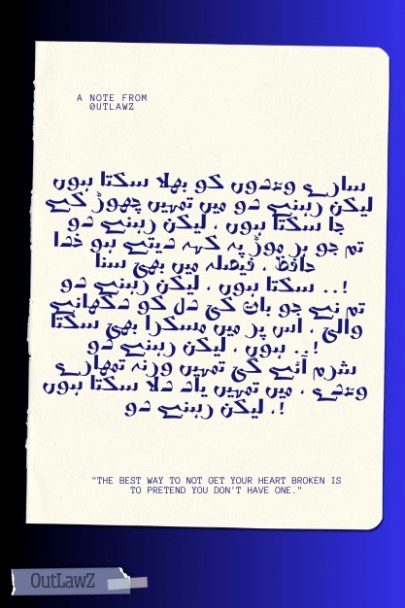 A NOTE FROM
0UTLAWZ
سارے وعدوں کو بھلا سکتا ہوں
لیکن رہنے دو میں تمہیں چھوڑ کے
جا سکتا ہوں ، لیکن رہنے دو
تم جو ہر موڑ پہ کہہ دیتے ہو خدا
حافظ ، فیصلہ میں بھی سنا
سکتا ہوں ، لیکن رہنے دو ..!
تم نے جو بات کی دل کو دکھانے
والی ، اس پر میں مسکرا بھی سکتا
ہوں ، لیکن رہنے دو ..!
شرم آئے گی تمہیں ورنہ تمہارے
وعدے ، میں تمہیں یاد دلا سکتا ہوں
، لیکن رہنے دو !.
"THE BEST WAY TO NOT GET YOUR HEART BROKEN IS
TO PRETEND YOU DON'T HAVE ONE."
OutLawZ